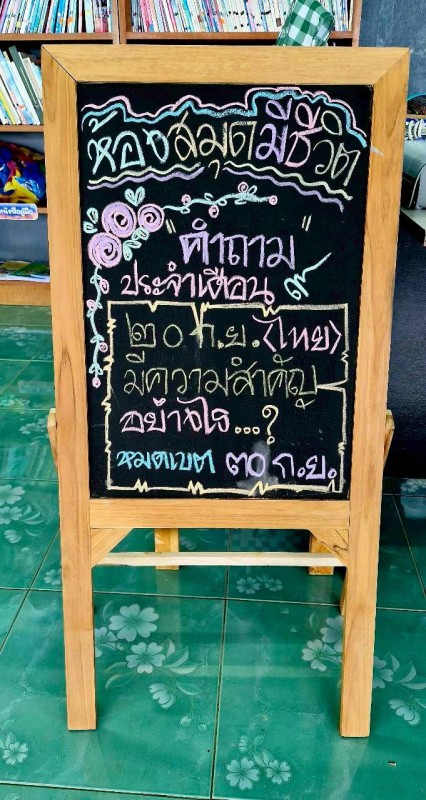 ห้องสมุดมีชีวิต
"คำถาม"
ประจำเดือน ๙
๒๐ ก.ย. <ไทย>
มีความสำคัญ
อย่างไร...?
หมดเขต ๓๐ ก.ย.